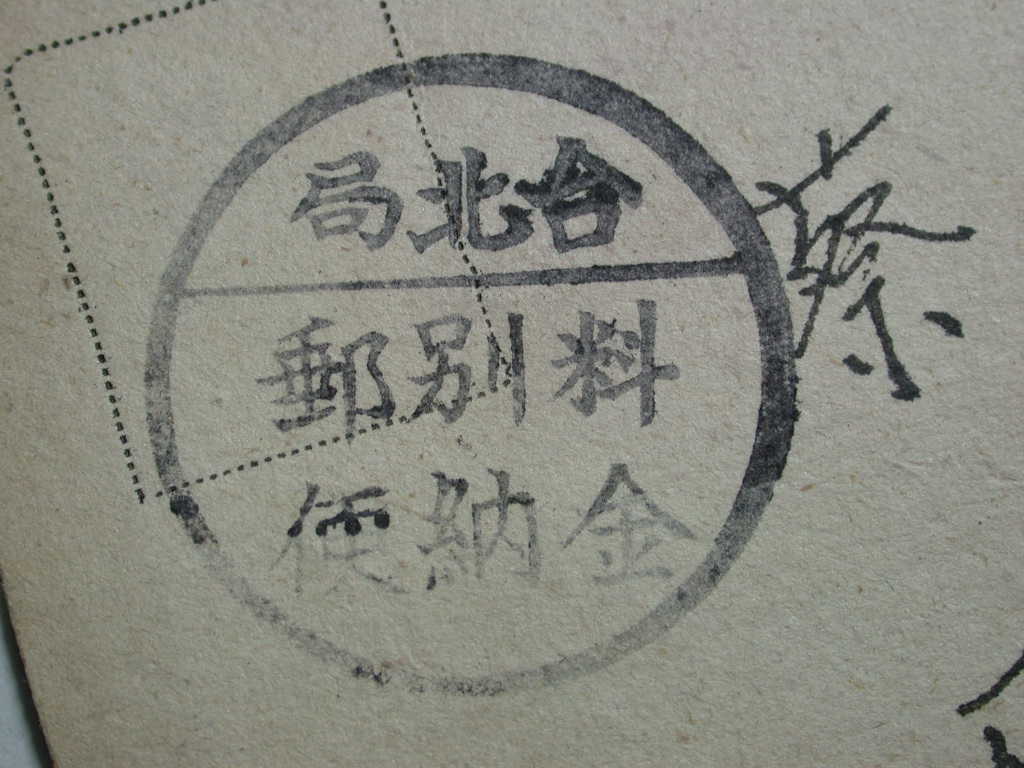 台北局
料金
別納
郵便
蔡